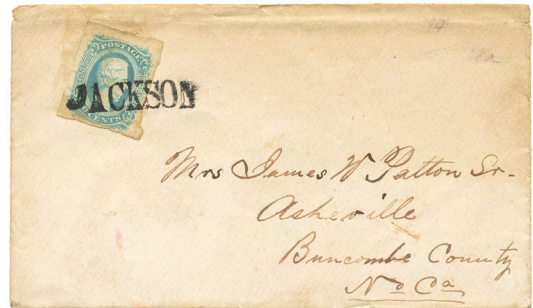 POSTAGE
CENTS
JACKSON
Mrs James W Patton Sr.
Asheville
Buncombe County
No Ca